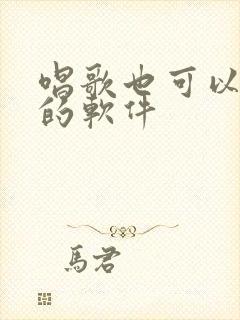 唱歌也可以
的軟件
馬君